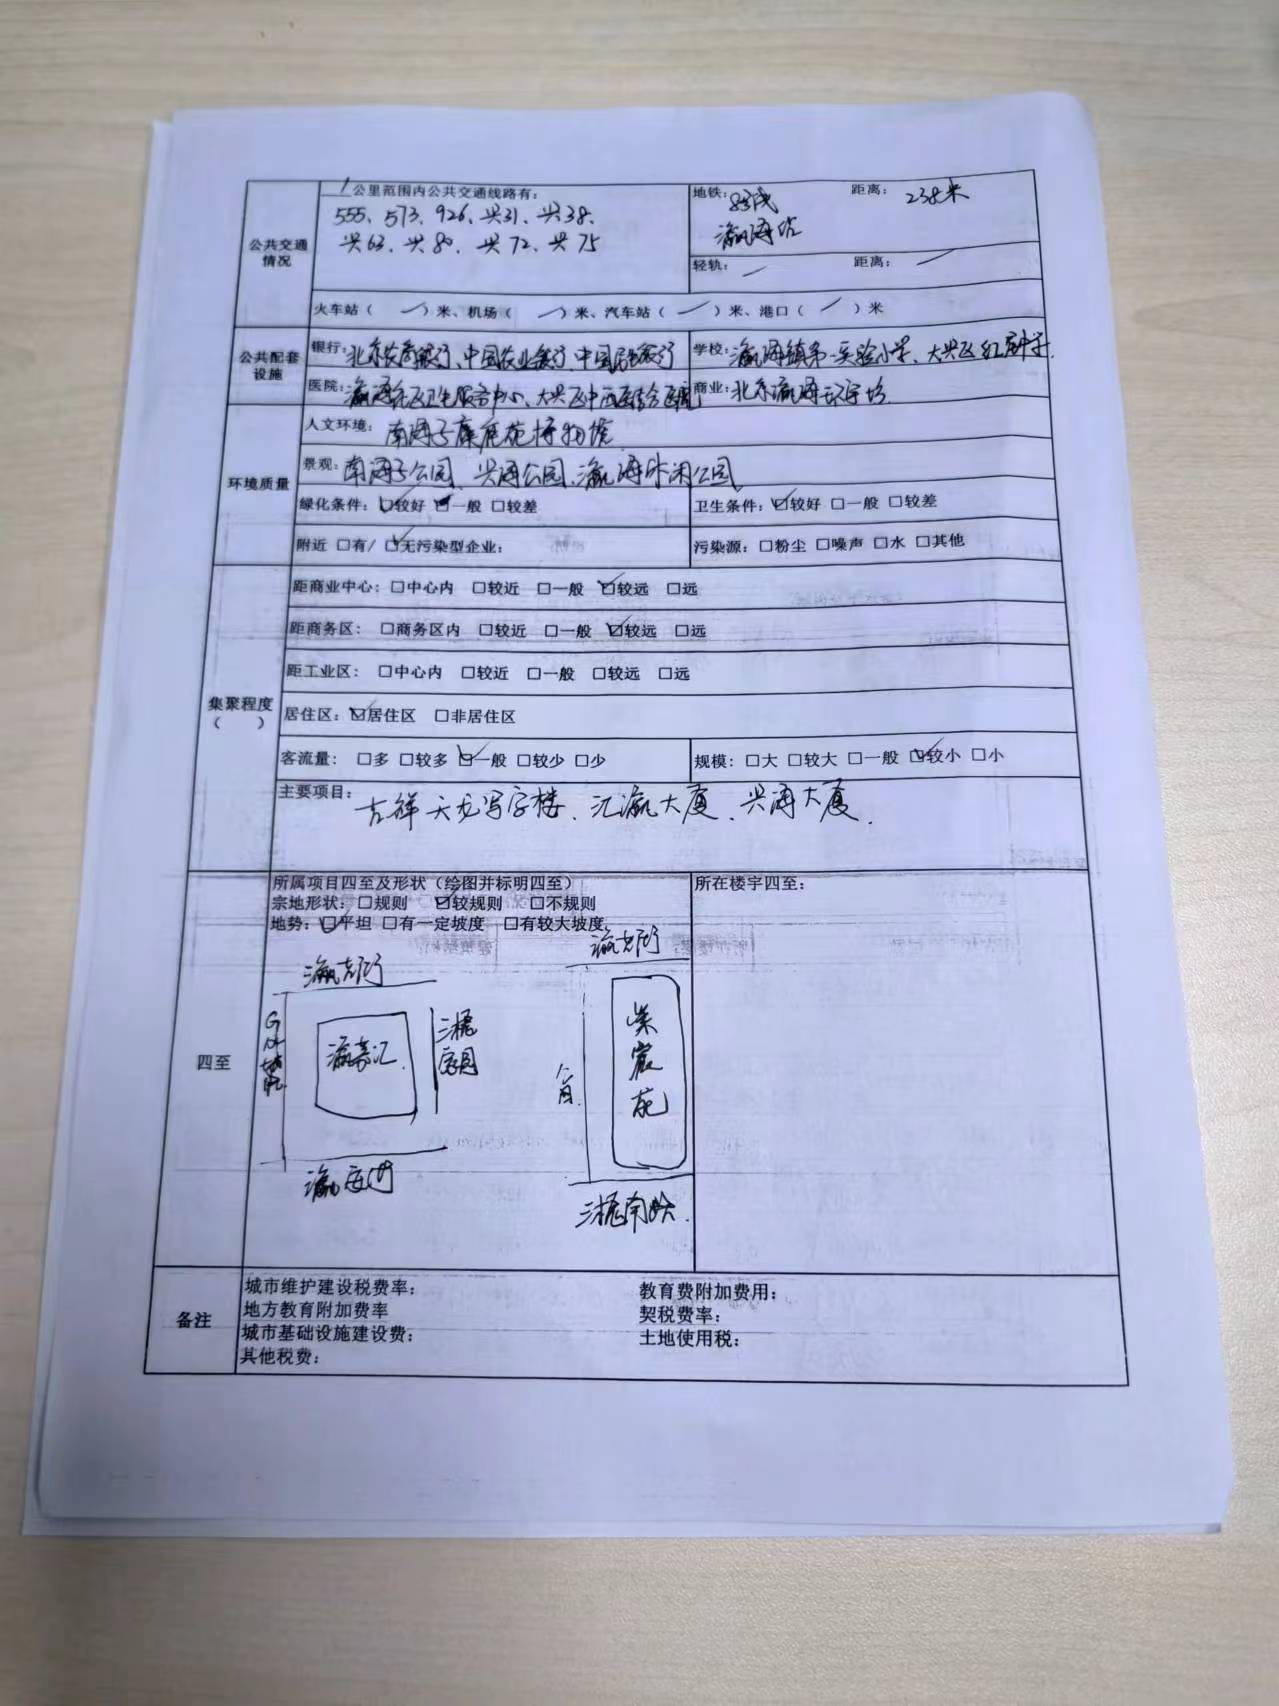 公共交通情况
1公里范围内公共交通线路有:
555、573、926、兴31、兴38、
兴63、兴80、兴72、兴75
地铁: 8号线 距离: 238米
瀛海站
轻轨: 距离:
火车站( )米、机场( )米、汽车站( )米、港口( )米
公共配套设施
银行: 北京农商银行、中国农业银行、中国
学校: 瀛海镇第一实验小学、大兴区红星中学
医院: 瀛海社区卫生服务中心、大兴区中西医结合医院
商业: 北京瀛海环宇坊
环境质量
人文环境: 南海子麋鹿苑博物馆
景观: 南海子公园、兴海公园、瀛海休闲公园
绿化条件: □较好 □一般 □较差
卫生条件: □较好 □一般 □较差
附近 □有/ □无污染型企业:
污染源: □粉尘 □噪声 □水 □其他
集聚程度
( )
距商业中心: □中心内 □较近 □一般 □较远 □远
距商务区: □商务区内 □较近 □一般 □较远 □远
距工业区: □中心内 □较近 □一般 □较远 □远
居住区: □居住区 □非居住区
客流量: □多 □较多 □一般 □较少 □少
规模: □大 □较大 □一般 □较小 □小
主要项目: 吉祥天龙写字楼、汇瀛大厦、兴海大厦.
四至
所属项目四至及形状(绘图并标明四至)
宗地形状: □规则 □较规则 □不规则
地势: □平坦 □有一定坡度 □有较大坡度
所在楼宇四至:
三槐家园
紫宸苑
三槐南
备注
城市维护建设税费率:
教育费附加费用:
地方教育附加费率
契税费率:
城市基础设施建设费:
土地使用税:
其他税费: